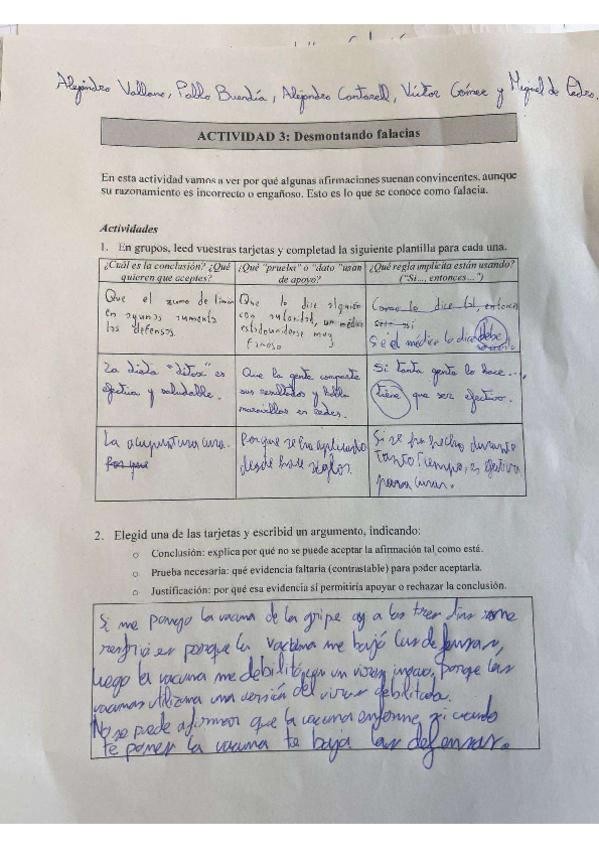 Alejandro Vallano, Pablo Buendía, Alejandro Cantarell, Víctor Gómez y Miguel de Pedro.
ACTIVIDAD 3: Desmontando falacias
En esta actividad vamos a ver por qué algunas afirmaciones suenan convincentes, aunque
su razonamiento es incorrecto o engañoso. Esto es lo que se conoce como falacia.
Actividades
1. En grupos, leed vuestras tarjetas y completad la siguiente plantilla para cada una.
¿Cuál es la conclusión? ¿Qué
quieren que aceptes?
¿Qué "prueba" o "dato" usan
de apoyo?
¿Qué regla implícita están usando?
("Si..., entonces...")
Que el zumo de limón
en ayunas aumenta
las defensas.
Que lo dice alguien
con autoridad, un médico
estadounidense muy
famoso
Como lo dice tal, entonces
será así
Si el médico lo dice debe
La dieta "détox" es
efectiva y saludable.
Que la gente comparte
sus resultados y habla
maravillas en redes.
Si tanta gente lo hace...,
tiene que ser efectivo.
La acupuntura cura.
Por que
Porque se ha aplicado
desde hace siglos.
Si se ha hecho durante
tanto tiempo, es efectiva
para curar.
2. Elegid una de las tarjetas y escribid un argumento, indicando:
o Conclusión: explica por qué no se puede aceptar la afirmación tal como está.
o Prueba necesaria: qué evidencia faltaría (contrastable) para poder aceptarla.
o Justificación: por qué esa evidencia sí permitiría apoyar o rechazar la conclusión.
Si me pongo la vacuna de la gripe y a los tres días me
resfrío es porque la vacuna me bajó las defensas,
luego la vacuna me debilitó con un virus porque las
vacunas utilizan una versión del virus debilitada.
No se puede afirmar que la vacuna enferme, ni cuando
te ponen la vacuna te baja las defensas.